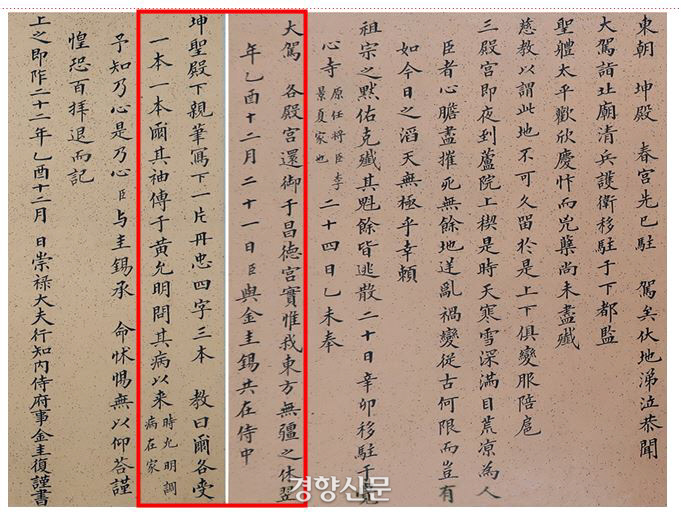 東朝 坤殿 春宮先已駐 駕矣伏地涕泣恭聞
大駕詣北廟清兵護衛移駐于下都監
聖軆太平歡欣慶忭而兇蘖尚未盡殲
慈教以謂此地不可久留於是上下俱變服陪扈
三殿宮即夜到蘆院上稧是時天寒雪深滿目荒凉為人
臣者心膽盡摧死無餘地逆亂禍變從古何限而豈有
如今日之滔天無極乎幸賴
祖宗之黙佑克殲其魁餘皆逃散二十日辛卯移駐于覺
心寺 原任將臣李景夏家也 二十四日乙未奉
大駕 各殿宮還御于昌德宮實惟我東方無疆之休翌
年乙酉十二月二十一日臣與金圭錫共在侍中
坤聖殿下親筆寫下一片丹忠四字三本 教曰爾各受
一本一本爾其袖傳于黃允明問其病以来 時允明調病在家
予知乃心是乃心臣与圭錫承 命怵惕無以仰答謹
惶恐百拜退而記
上之即阼二十二年乙酉十二月 日崇祿大夫行知內侍府事金圭復謹書
경향신문